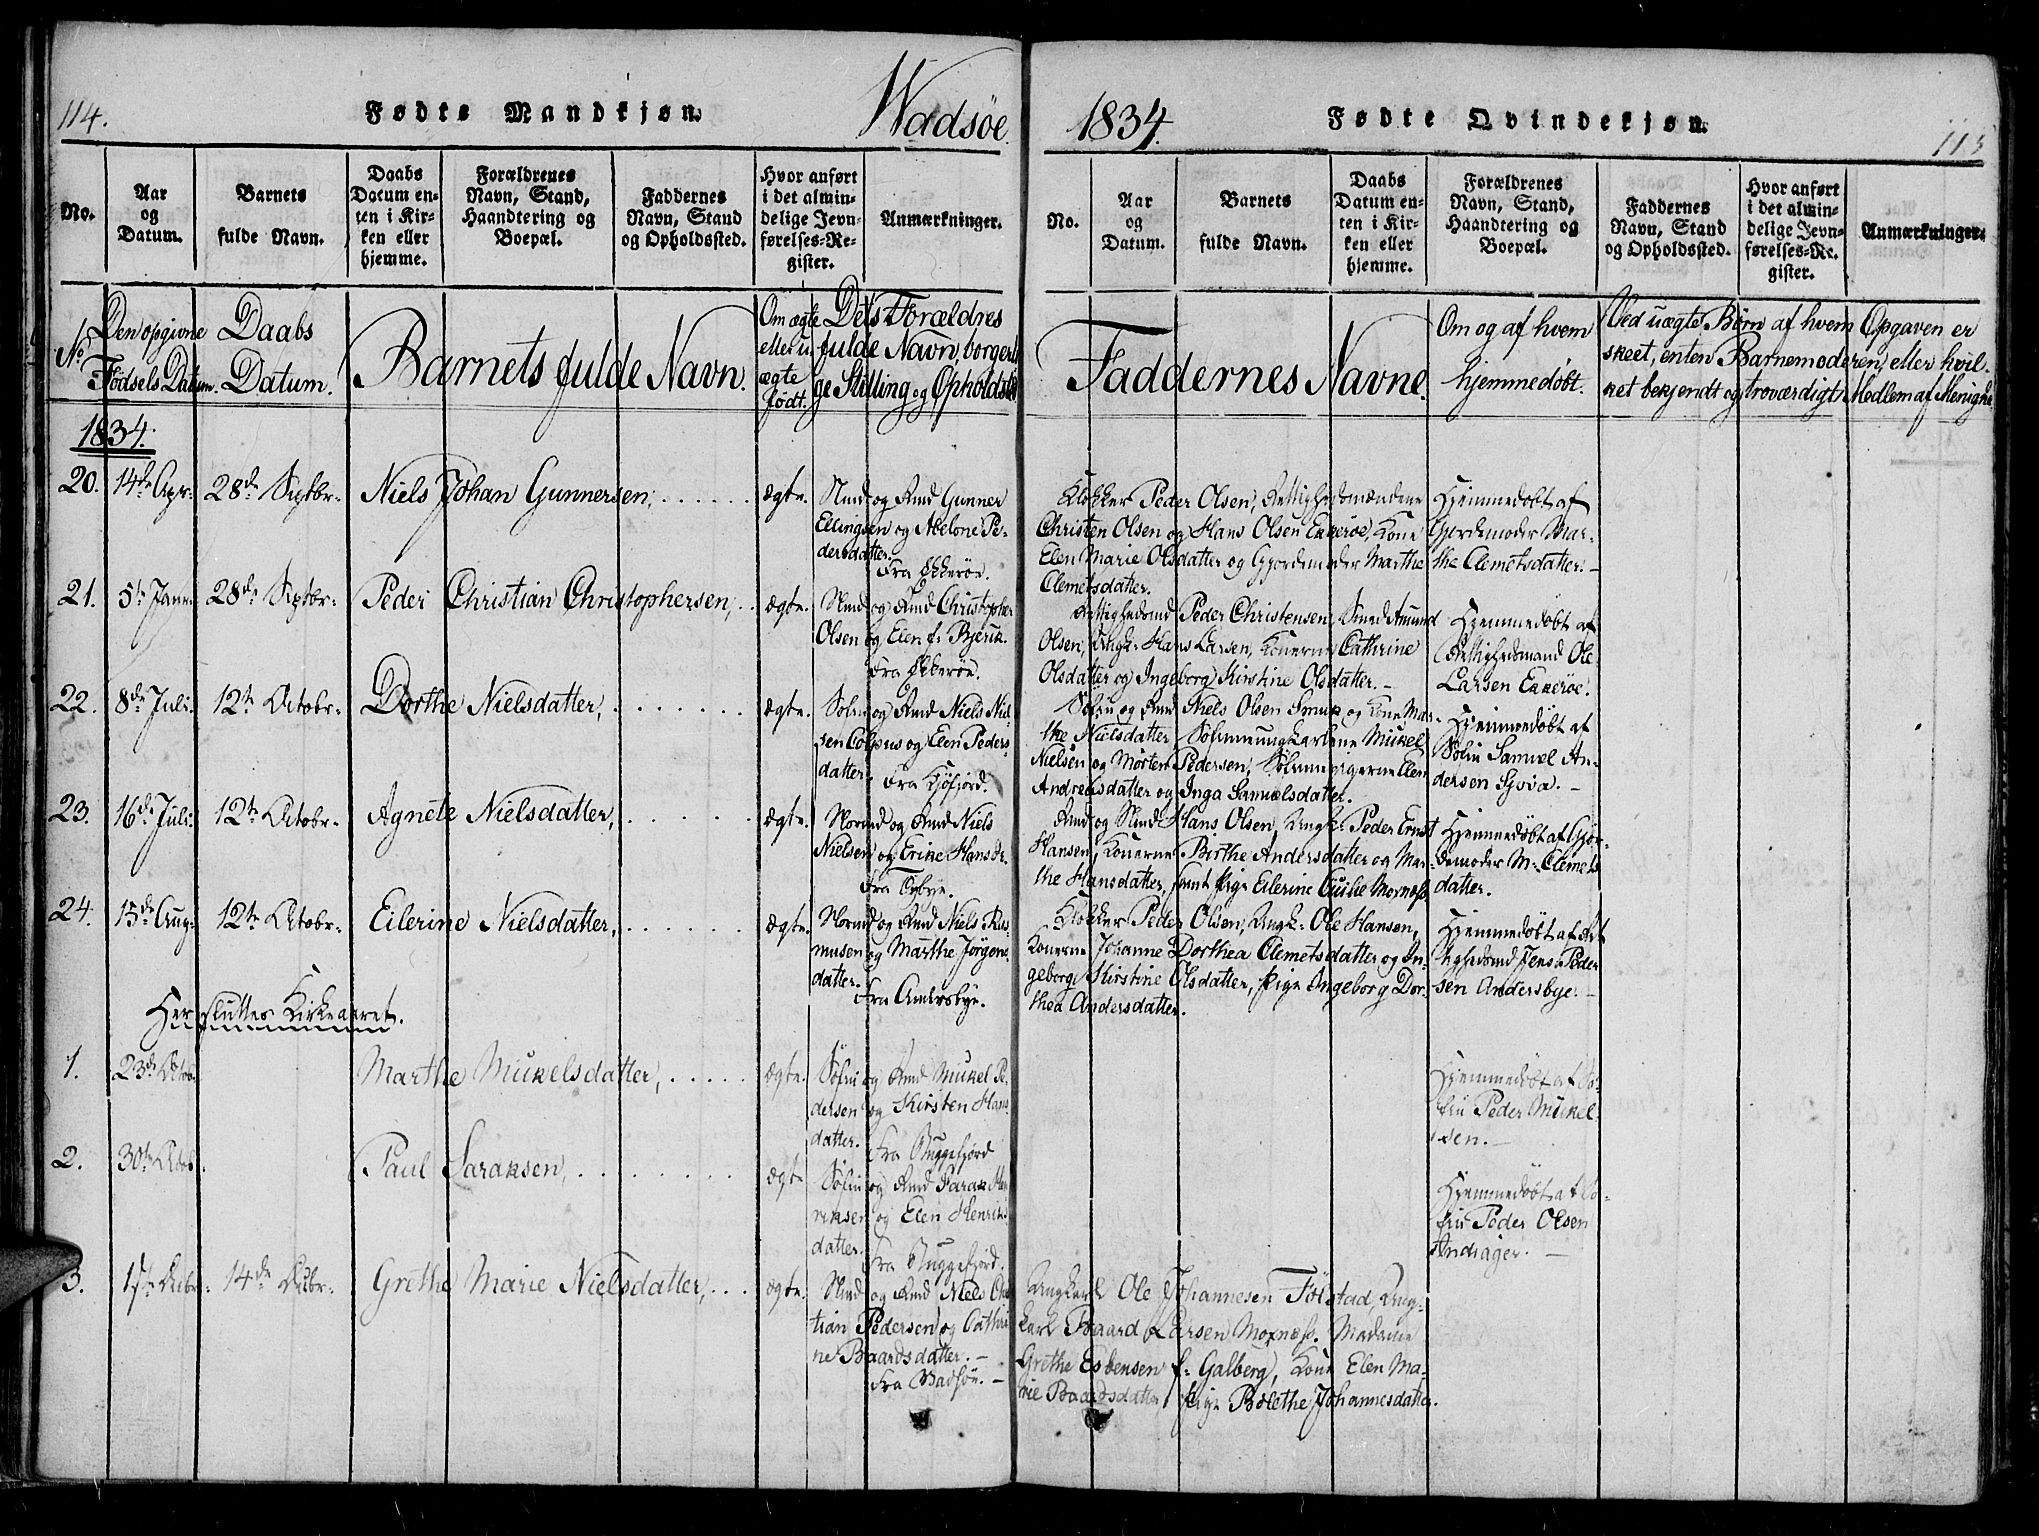 114.
Fødte Mandkjøn.
Wadsøe
1834.
Fødte Qvindekjøn.
115
No.
Aar
og
Datum.
Barnets
fulde Navn.
Daabs
Datum en-
ten i Kir-
ken eller
hjemme.
Forældrenes
Navn, Stand,
Haandtering og
Boepæl.
Faddernes
Navn, Stand
og Opholdssted.
Hvor anført
i det almin-
delige Jevn-
førelses-Re-
gister.
Anmærkninger.
No.
Aar
og
Datum.
Barnets
fulde Navn.
Daabs
Datum en-
ten i Kir-
ken eller
hjemme.
Forældrenes
Navn, Stand,
Haandtering og
Boepæl.
Faddernes
Navn, Stand
og Opholdssted.
Hvor anført
i det almin-
delige Jevn-
førelses-Re-
gister.
Anmærkninger.
No.
Den opgivne
Fødsels Datum.
Daabs
Datum.
Barnets fulde Navn.
Om ægte
eller u-
ægte
født.
Dets Forældres
fulde Navn, borgerli
ge Stilling og Opholdsst
Faddernes Navne.
Om og af hvem
hjemmedøbt.
Ved uægte Børn af hvem Opgaven er
skeet, enten Barnemoderen, eller hvil-
ket bekjendt og troværdigt Medlem af Menighe
1834.
20. 14de Apr. 28de Septbr. Niels Johan Gunnersen, ægte.
Nmd og Kmd Gunner
Ellingsen og Abelone Pe-
dersdatter.
Fra Ekkerøe.
Klokker Peder Olsen, Rettighedsmændene
Christen Olsen og Hans Olsen Ekkerøe, Kone
Elen Marie Olsdatter og Gjordemoder Marthe
Clemetsdatter.
Hjemmedøbt af
Gjordemoder Mar-
the Clemetsdatter.
21. 5te Janr. 28de Septbr. Peder Christian Christophersen, ægte.
Nmd og Kmd Christopher
Olsen og Elen f: Bjerik.
Fra Ekkerøe.
Rettighedsmd Peder Christensen, Smed Amund
Olsen, Ungk: Hans Larsen, Konerne Cathrine
Olsdatter og Ingeborg Kirstine Olsdatter.
Hjemmedøbt af
Rettighedsmand Ole
Larsen Ekkerøe.
22. 8de Juli. 12te Octobr. Dorthe Nielsdatter, ægte.
Søfin og Kmd Niels Niel-
sen Colpus og Elen Peders-
datter.
Fra Kjøfjord.
Søfin og Kmd Niels Olsen Smuk og Kone Mar-
the Nielsdatter, Søfinneungkarlene Mikel
Nielsen og Morten Pedersen, Søfinnepigerne Elen
Andreasdatter og Inga Samuelsdatter.
Hjemmedøbt af
Søfin Samuel An-
dersen
23. 16de Juli. 12te Octobr. Agnete Nielsdatter, ægte.
Normd og Kmd Niels
Nielsen og Erike Hansdr.
Fra
Kmd og Nmd Hans Olsen, Ungk: Peder Ernst
Hansen, Konerne Birthe Andersdatter og Mar-
the Hansdatter, samt Pige Eilerine Cecilie Moxness.
Hjemmedøbt af Gjor-
demoder M: Clemets
datter.
24. 15de Aug. 12te Octobr. Eilerine Nielsdatter, ægte.
Normd og Kmd Niels Ras-
musen og Marthe Jørgens-
datter.
Fra Andersbye.
Klokker Peder Olsen, Ungk: Ole Hansen,
Konerne Johanne Dorthea Clemetsdatter og In-
geborg Kirstine Olsdatter, Pige Ingeborg Dor-
thea Andersdatter.
Hjemmedøbt af Ret
tighedsmd Jens Peder
sen Andersbye.
Her sluttes Kirkeaaret.
1. 23de Octob. Marthe Mikelsdatter, ægte.
Søfin og Kmd Mikel Pe-
dersen og Kirsten Hans
datter.
Fra Buggefjord
Hjemmedøbt af Sø-
fin Peder Mikel-
sen.
2. 30te Octob. Paul Saraksen, ægte
Søfin og Kmd Sarak Hen
riksen og Elen Henriks
datter.
Fra Buggefjord.
Hjemmedøbt af Sø-
fin Peder Olsen
Andiager.
3. 1ste Decbr. 14de Decbr. Grethe Marie Nielsdatter, ægte.
Nmd og Kmd Niels Chris
tian Pedersen og Cathri
ne Baardsdatter.
Fra Vadsøe.
Ungkarl Ole Johannesen Følstad, Ung-
karl Baard Larsen Moxness, Madame
Grethe Esbensen f: Galberg, Kone Elen Ma-
rie Baardsdatter, Pige Bolethe Johannesdatter.